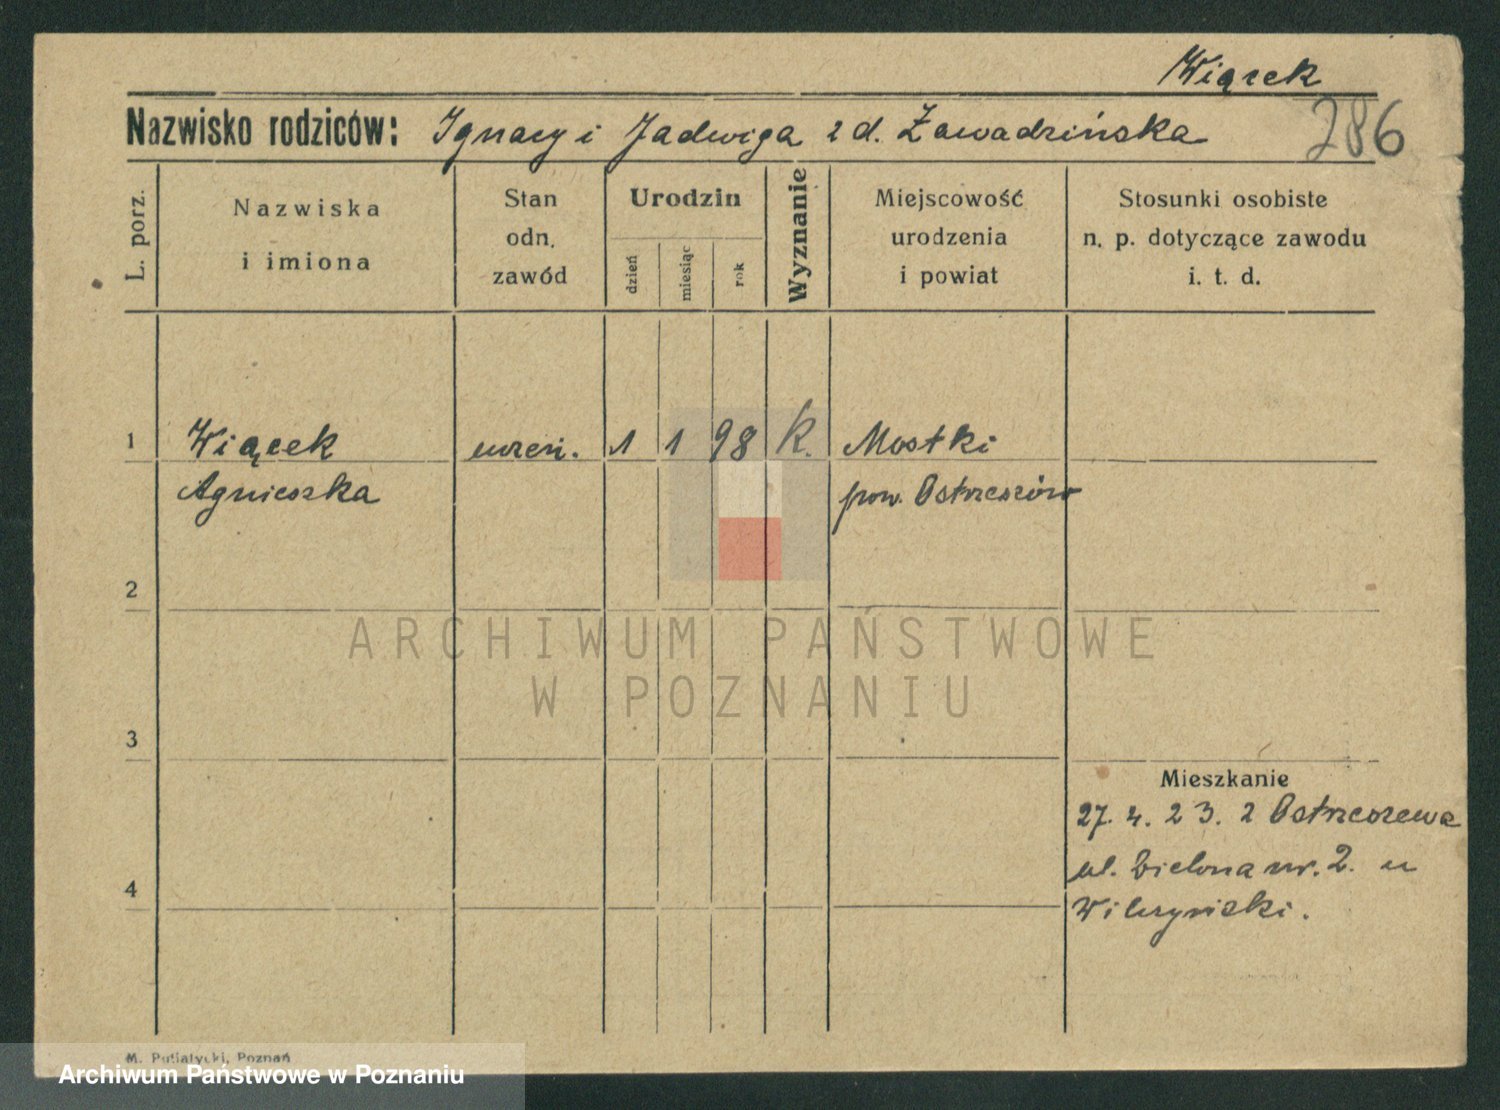 Wiącek
Nazwisko rodziców: Ignacy i Jadwiga z d. Zawadzińska
286
L. porz.
Nazwiska
i imiona
Stan
odn.
zawód
Urodzin
dzień
miesiąc
rok
Wyznanie
Miejscowość
urodzenia
i powiat
Stosunki osobiste
n. p. dotyczące zawodu
i. t. d.
1 Wiącek 1 1 98 k. Mostki
Agnieszka pow. Ostrzeszów
2
ARCHIWUM PAŃSTWOWE
W POZNANIU
3
Mieszkanie
27. 4. 23. z Ostrzeszewa
4 ul. Zielona nr. 2. u
M. Putiatycki, Poznań
Archiwum Państwowe w Poznaniu